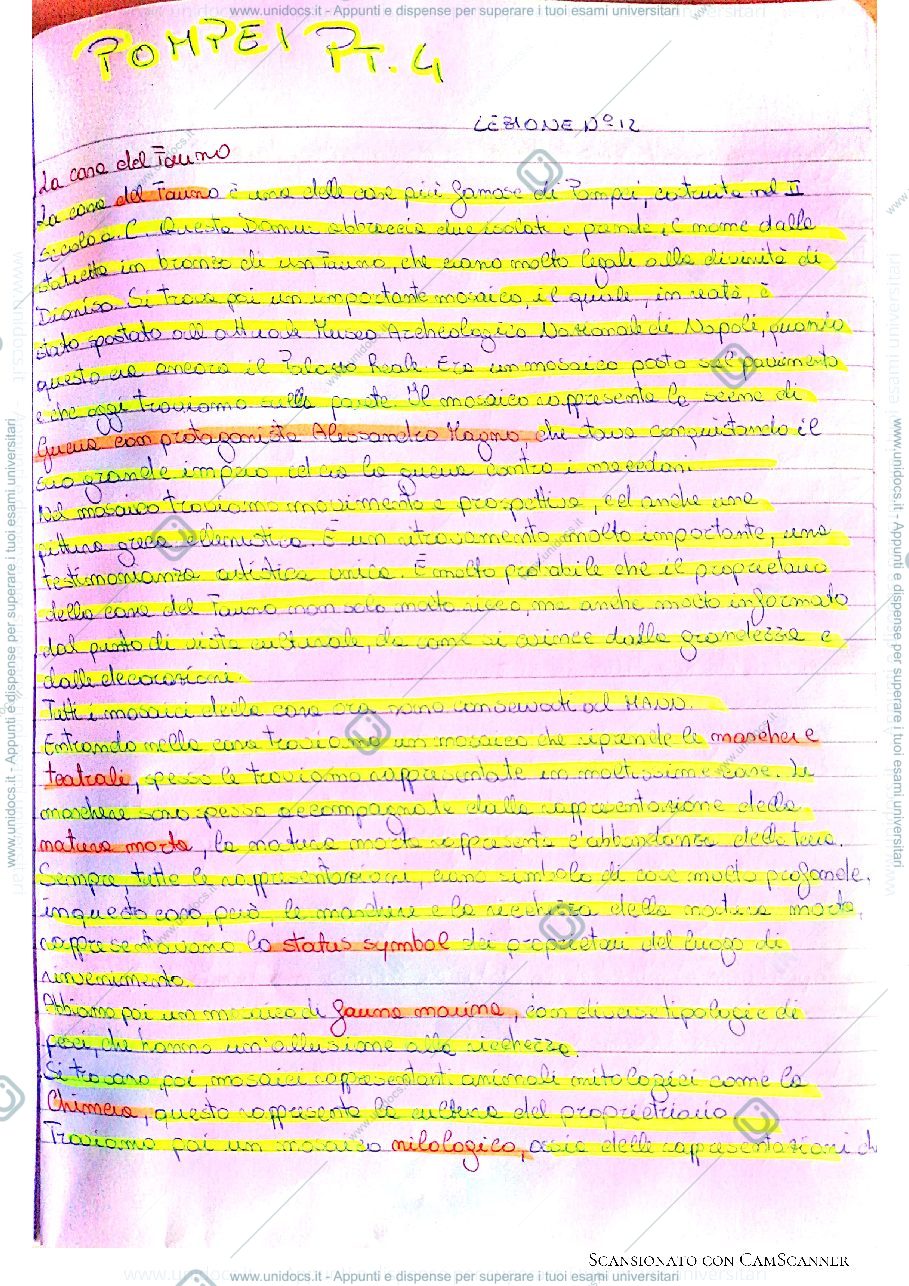 www.unidocs.it - Appunti e dispense per superare i tuoi esami universitari
POMPEI PT. 4
LEZIONE N° 12
La casa del Fauno
La casa del Fauno è una delle case più famose di Pompei, costruita nel II
secolo a.C. Questa Domus abbraccia due isolati e prende il nome dalla
statuetta in bronzo di un Fauno, che erano molto legati alla divinità di
Dioniso. Si trova poi un importante mosaico, il quale, in realtà, è
stato postato all'attuale Museo Archeologico Nazionale di Napoli, quando
questo era ancora il Palazzo Reale. Era un mosaico posto sul pavimento
e che oggi troviamo sulla parete. Il mosaico rappresenta la scena di
guerra con protagonista Alessandro Magno che stava conquistando il
suo grande impero, ed era la guerra contro i macedoni.
Nel mosaico troviamo movimento e prospettiva, ed anche una
pittura greca ellenistica. È un ritrovamento molto importante, una
testimonianza artistica unica. È molto probabile che il proprietario
della casa del Fauno non solo molto ricco, ma anche molto informato
dal punto di vista culturale, da come si evince dalla grandezza e
dalle decorazioni.
Tutti i mosaici della casa ora sono conservati al MANN.
Entrando nella casa troviamo un mosaico che riprende le maschere
teatrali, spesso le troviamo rappresentate in moltissime case. Le
maschere sono spesso accompagnate dalla rappresentazione della
natura morta, la natura morta rappresenta l'abbondanza della terra.
Sempre, tutte le rappresentazioni, erano simbolo di cose molto profonde.
in questo caso, però, le maschere e la ricchezza della natura morta,
rappresentavano lo status symbol dei proprietari del luogo di
rinvenimento.
Abbiamo poi un mosaico di fauna marina, con diverse tipologie di
pesci, che hanno un'allusione alla ricchezza.
Si trovano poi, mosaici rappresentanti animali mitologici come la
Chimera, questo rappresenta la cultura del proprietario
Troviamo poi un mosaico nilologico, ossia delle rappresentazioni di
Scansionato con CamScanner
www.unidocs.it - Appunti e dispense per superare i tuoi esami universitari